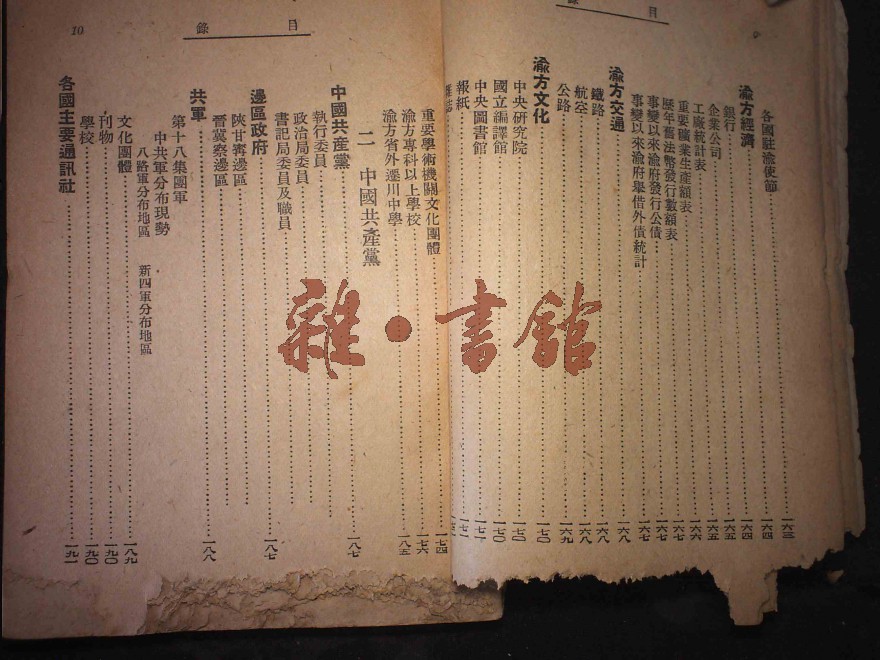 目
各國駐渝使節 一六三
渝方經濟 一六四
銀行 一六四
企業公司 一六五
工廠統計表 一六六
重要礦業生產額表 一六七
歷年舊法幣發行數額表 一六七
事變以來渝府發行公債 一六七
事變以來渝府舉借外債統計
渝方交通 一六八
鐵路 一六八
航空 一六八
公路 一六九
渝方文化 一七〇
中央研究院 一七〇
國立編譯館 一七〇
中央圖書館 一七一
報紙 一七一
雜誌
目錄
10
重要學術機關文化團體 一七四
渝方專科以上學校 一七六
渝方省外遷川中學 一八五
二 中國共產黨
中國共產黨 一八七
執行委員
政治局委員
書記局委員及職員
邊區政府 一八七
陝甘寗邊區
晉冀察邊區
共軍 一八八
第十八集團軍
中共軍分布現勢
八路軍分布地區 新四軍分布地區
文化團體 一八九
刊物 一九〇
學校 一九〇
各國主要通訊社 一九一
雜·書館